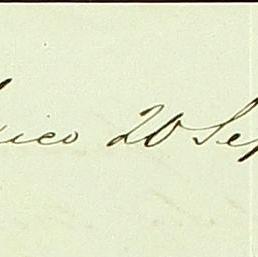 xico 20 Sep